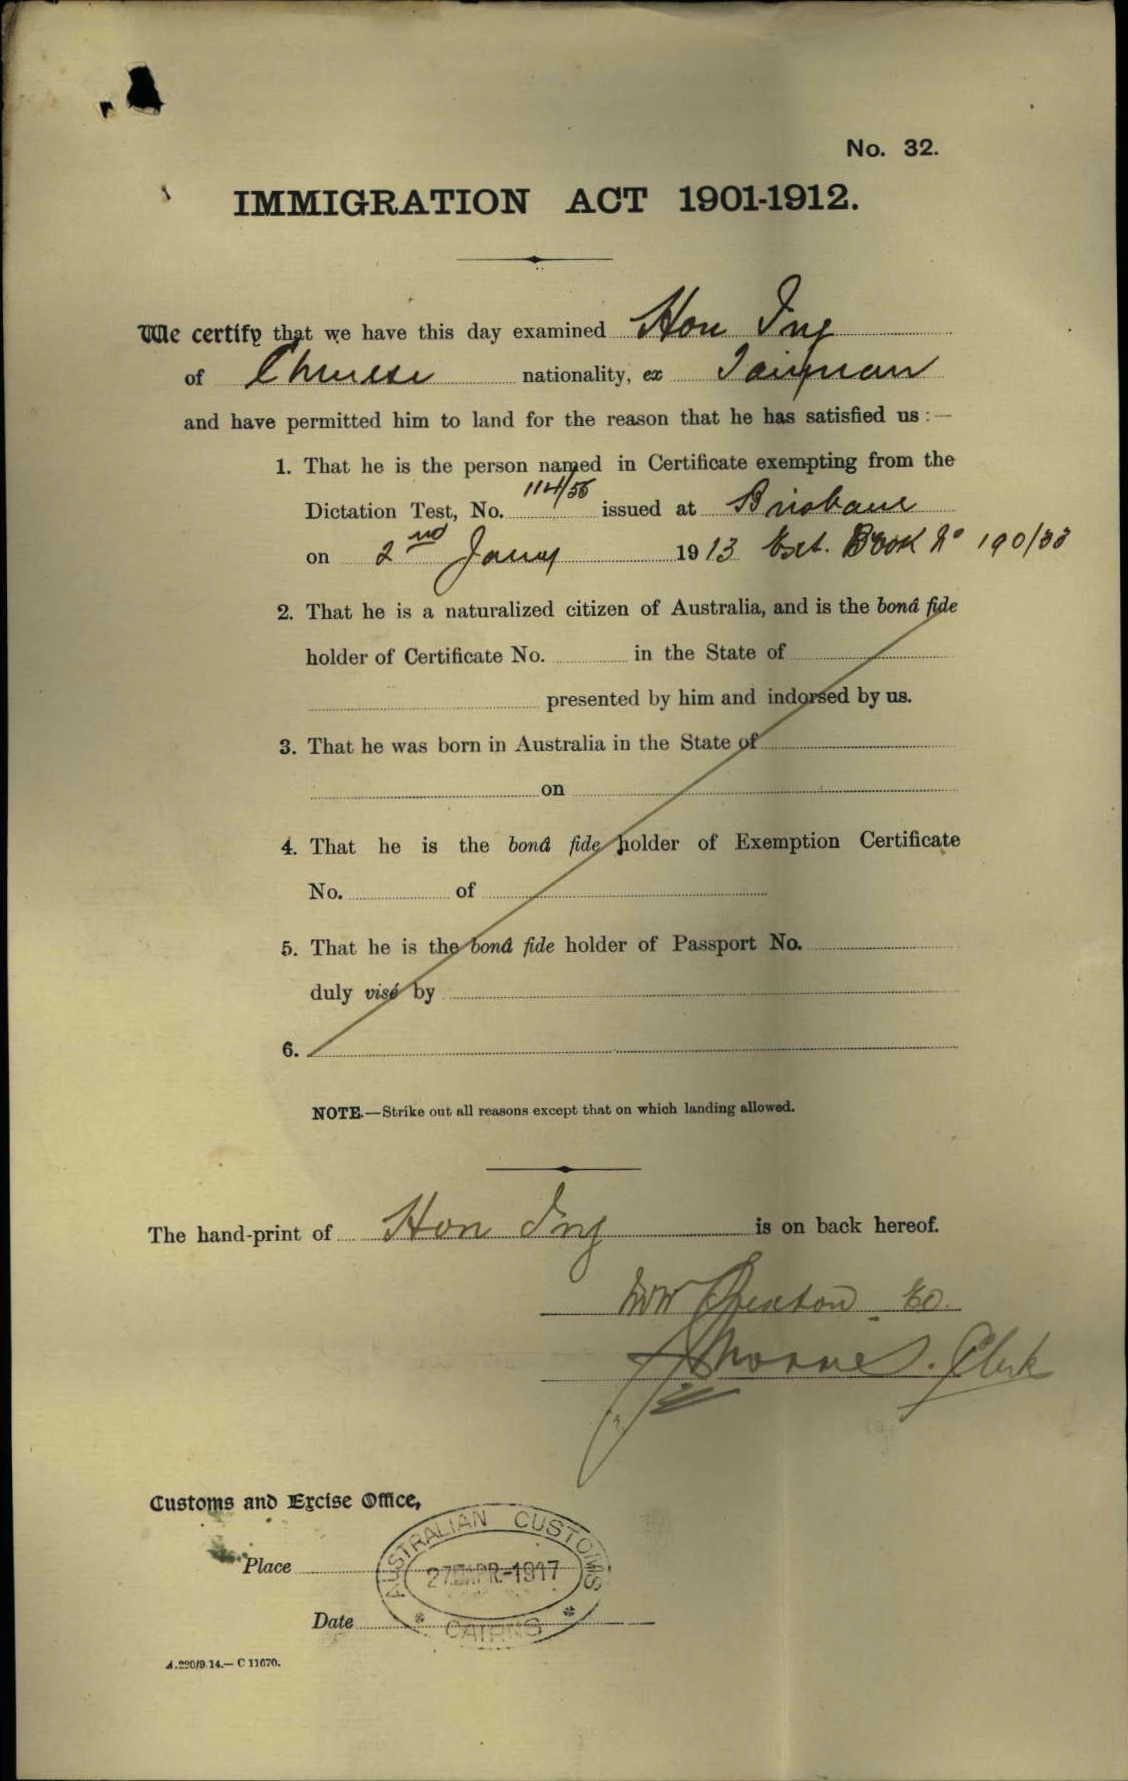 No. 32.
IMMIGRATION ACT 1901-1912.
We certify that we have this day examined Hon Ing
of Chinese nationality, ex Taiyuan
and have permitted him to land for the reason that he has satisfied us :—
1. That he is the person named in Certificate exempting from the
Dictation Test, No. 114/56 issued at Brisbane
on 2nd Jany 1913 Ext. Book No 190/33
2. That he is a naturalized citizen of Australia, and is the bonâ fide
holder of Certificate No. in the State of
presented by him and indorsed by us.
3. That he was born in Australia in the State of
on
4. That he is the bonâ fide holder of Exemption Certificate
No. of
5. That he is the bonâ fide holder of Passport No.
duly visé by
6.
NOTE.—Strike out all reasons except that on which landing allowed.
The hand-print of Hon Ing is on back hereof.
EO.
Clerk
Customs and Excise Office,
AUSTRALIAN CUSTOMS
Place
27 APR 1917
Date
CAIRNS
A.290/9.14.— C 11670.